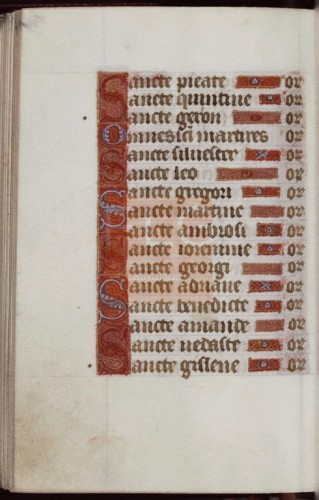 Sancte pieate or
Sancte quintine or
Sancte geron or
Omnes sci martires or
Sancte siluester or
Sancte leo or
Sancte gregori or
Sancte martine or
Sancte ambrosi or
Sancte ieronime or
Sancte georgi or
Sancte adriane or
Sancte benedicte or
Sancte amande or
Sancte uedaste or
Sancte gislene or